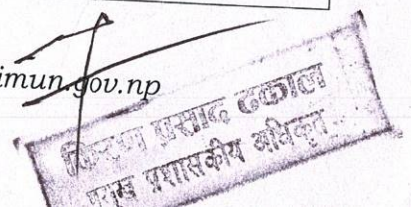 imun.gov.np
किरण प्रसाद ढकाल
प्रमुख प्रशासकीय अधिकृत